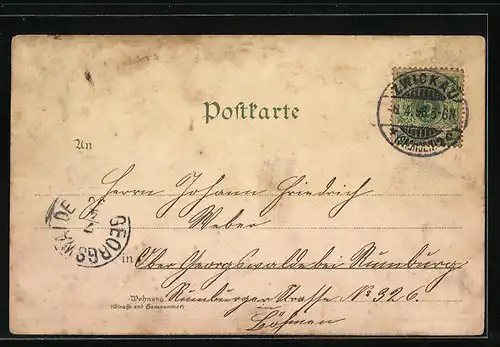 ZWICKAU
Postkarte
(SACHSEN)
An
Herrn Johann Friedrich
Weber
GEORGSWALDE
in Ober Georgswalde bei Rumburg
Wohnung
(Straße und Hausnummer)
Rumburger Strasse No 326.
Böhmen